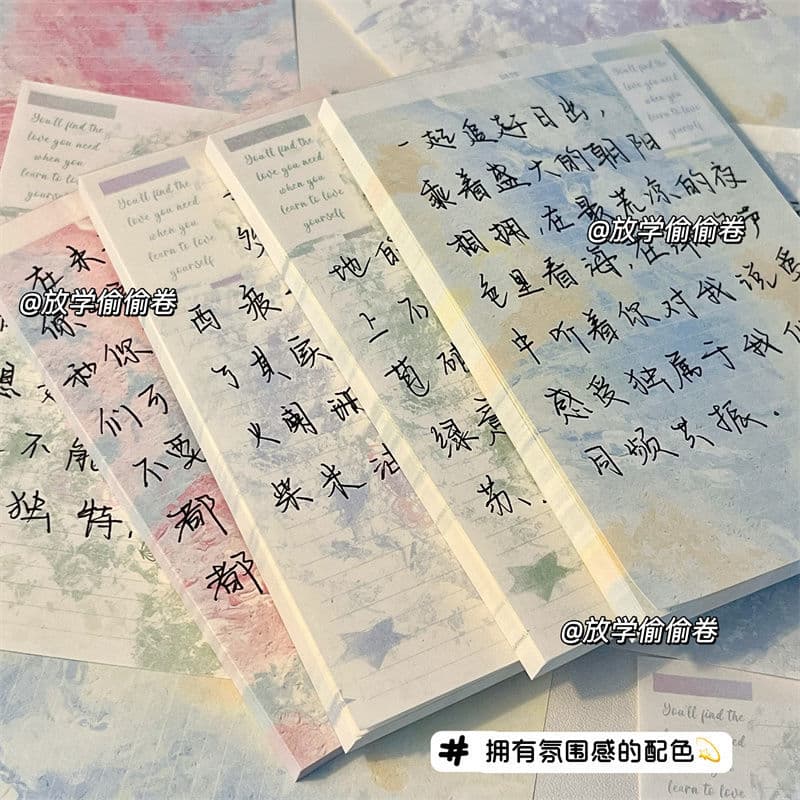 You'll find the
love you need
when you
learn to love
yourself
You'll find the
love you need
when you
learn to love
yourself
You'll find the
love you need
when you
learn to love
yourself
DATE
You'll find the
love you need
when you
learn to love
yourself
一起追赶日出,
乘着盛大的朝阳
相拥,在最荒凉的夜
色里看海,在
中听着你对我说爱
感受独属于我们
同频共振.
地的
上不
苞
绿意
苏.
西疲
了其实
火阑珊
柴米油
在未
你
和你
们可
不要
都
都
想
不能
独特,
@放学偷偷卷
@放学偷偷卷
@放学偷偷卷
You'll find the
love you need
when you
learn to love
# 拥有氛围感的配色💫